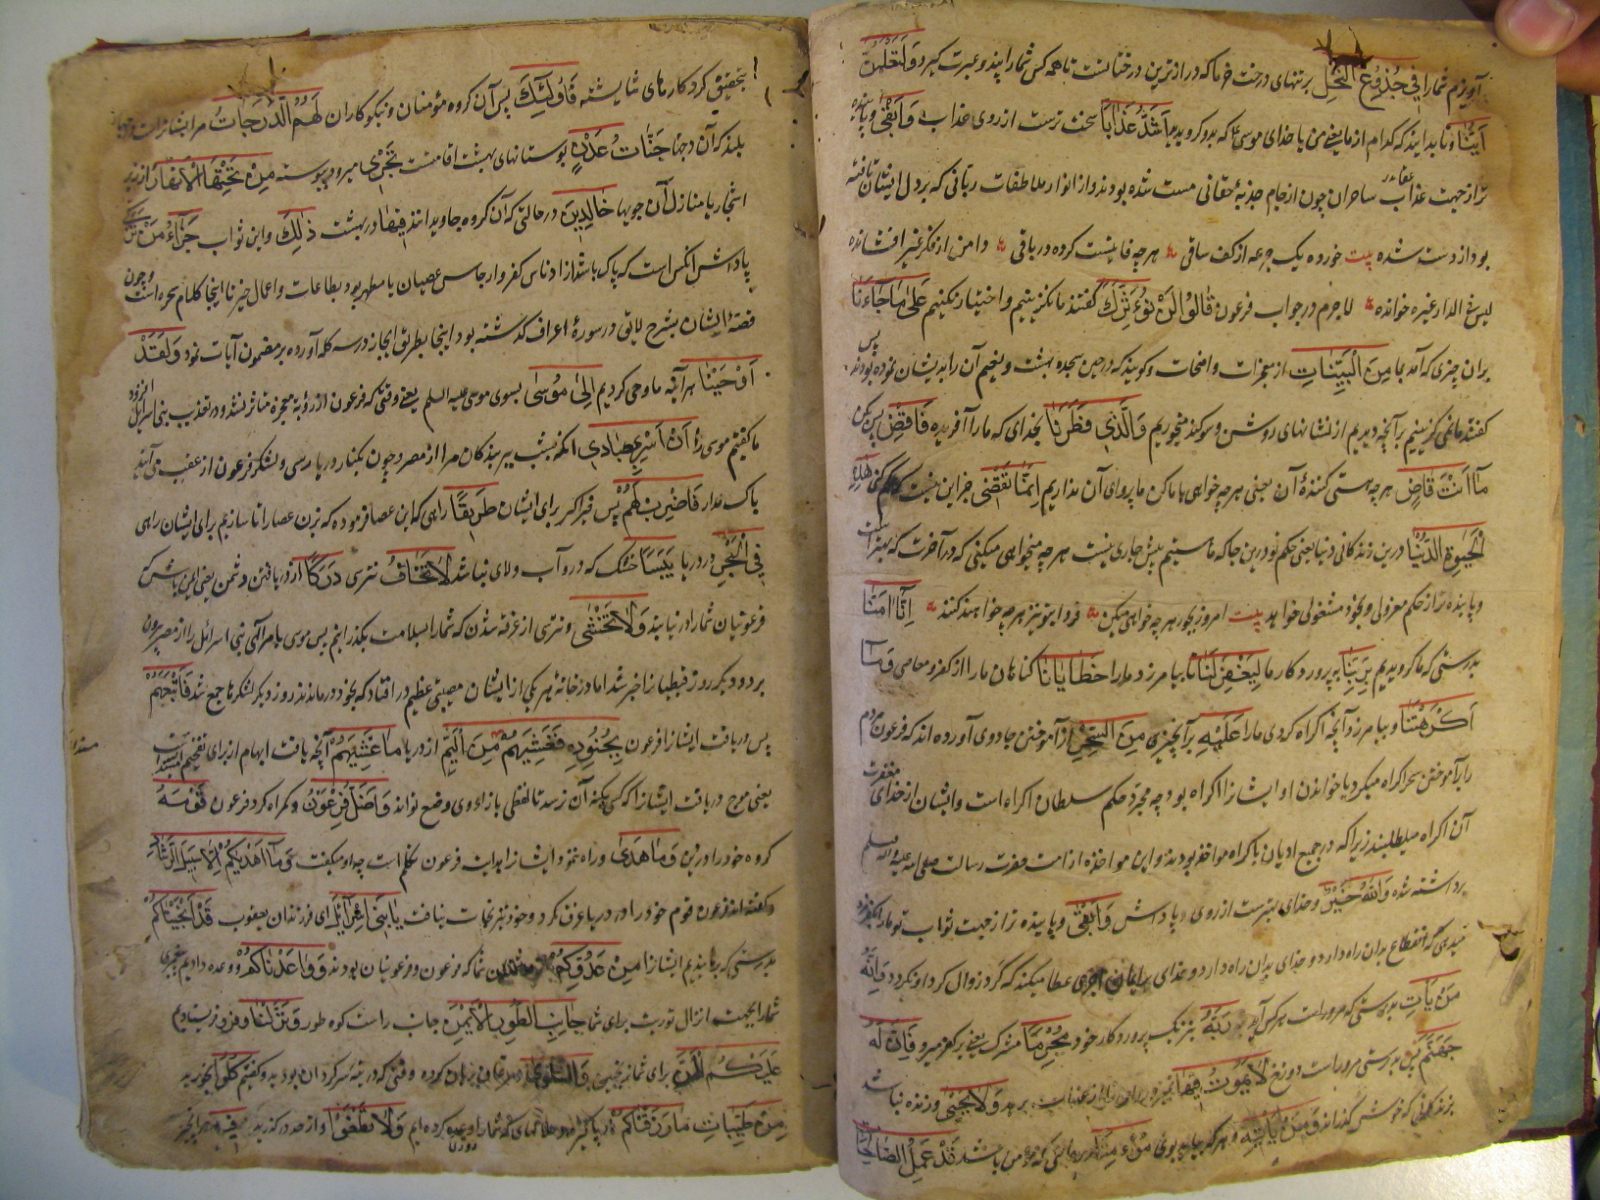 آویزم شمارا فِي جُذُوعِ النَّخْلِ بر تنهای درخت خرما که درازترین درختانست تا همه کس شمارا بیند و عبرت گیرد وَلَتَعْلَمُنَّ
اَيُّنَا و تا بدانید که کدام از ما یعنی من یا خدای موسی که بدو گرویدید اَشَدُّ عَذَابًا سخت ترست از روی عذاب وَاَبْقٰى و پاینده
تر از جهت عذاب ساحران چون از جام جذبهٔ حقانی مست شده بودند و از انوار ملاطفات ربانی که بر دل ایشان تافته
بود از دست شده بیت خورده یک جرعه از کف ساقی هر چه فانیست کرده در باقی دامن از فکر غیر افشانده
لیس فی الدار غیره خوانده لاجرم در جواب فرعون قَالُوا لَنْ نُؤْثِرَكَ گفتند ما نگزینیم و اختیار نکنیم عَلٰى مَا جَاءَنَا
بران چیزی که آمد بما مِنَ الْبَيِّنَاتِ از معجزات واضحات و گویند که در حین سجده بهشت و نعیم آن را بدیشان نموده بودند پس
گفتند ما نمی گزینیم بر آنچه دیدیم از نشانهای روشن و سوگند میخوریم وَالَّذِي فَطَرَنَا بخدای که مارا آفریده فَاقْضِ پس بکن
مَا اَنْتَ قَاضٍ هر چه هستی کنندهٔ آن یعنی هر چه خواهی با ما کن ما پروای آن نداریم اِنَّمَا تَقْضِي جز این نیست که حکم کنی هٰذِهِ
الْحَيٰوةَ الدُّنْيَا درین زندگانی دنیا یعنی حکم تو درین جا که ما هستیم بیش جاری نیست هر چه میخواهی میکنی که در آخرت که بهتر است
و پاینده تر از حکم معزولی و بخود مشغولی خواهد بیت امروز بجور هر چه خواهی میکن فردا بتو نیز هر چه خواهند کنند اِنَّا اٰمَنَّا
بدرستی که ما گرویدیم بِرَبِّنَا به پروردگار ما لِيَغْفِرَ لَنَا تا بیامرزد مارا خَطَايَانَا گناهان مارا از کفر و معاصی وَمَا
اَكْرَهْتَنَا و بیامرزد آنچه اکراه کردی مارا عَلَيْهِ بر آنچیزی مِنَ السِّحْرِ از آموختن جادوی آورده اند که فرعون مردم
را بر آموختن سحر اکراه میکرد یا خواندن او ایشانرا اکراه بود چه مجرد حکم سلطان اکراه است و ایشان از خدای مغفرت
آن اکراه میطلبند زیرا که در جمیع ادیان با کراه مواخذه بودند و این مواخذه از امت حضرت رسالت صلی الله علیه وسلم
برداشته شده وَاللّٰهُ خَيْرٌ و خدای بهترست از روی پاداش وَاَبْقٰى و پاینده تر از جهت ثواب تو مارا
میدهی که انقطاع بدان راه دارد و خدای برایمان اجری عطا میکند که گرد زوال کرد او نگردد اِنَّهُ
مَنْ يَأْتِ بدرستی که هر کس آید رَبَّهُ بنزدیک پروردگار خود مُجْرِمًا مشرک یعنی بر کفر میرد فَاِنَّ لَهُ
جَهَنَّمَ پس بدرستی مر وراست دوزخ لَا يَمُوتُ فِيهَا نمیرد دران تا از عذاب برهد وَلَا يَحْيٰى و زنده نباشد
بزندگانی که خوش گذراند وَمَنْ يَأْتِهِ و هر که بیاید بوی مُؤْمِنًا در حالتی که مومن باشد قَدْ عَمِلَ الصَّالِحَاتِ
بتحقیق کرد کارهای شایسته فَاُولٰئِكَ پس آن گروه مؤمنان و نیکوکاران لَهُمُ الدَّرَجَاتُ مر ایشانراست درجهای
بلند که آن درجها جَنَّاتُ عَدْنٍ بوستانهای بهشت اقامت تَجْرِي میرود پیوسته مِنْ تَحْتِهَا الْاَنْهَارُ از زیر
اشجار یا منازل آن جویها خَالِدِينَ در حالتی که آن گروه جاویدانند فِيهَا در بهشت ذٰلِكَ و این ثواب جَزَاءُ مَنْ تَزَكّٰى
پاداش آنکس است که پاک باشد از ادناس کفر و ارجاس عصیان یا مطهر بود بطاعات و اعمال خیر تا اینجا کلام سحره است و چون
قصهٔ ایشان بشرح لایق در سورهٔ اعراف گذشته بود اینجا بطریق ایجاز در سه کلمه آورده بر مضمون آیات نمود وَلَقَدْ
اَوْحَيْنَا هر آینه ما وحی کردیم اِلٰى مُوسٰى بسوی موسی علیه السلم یعنی وقتی که فرعون از رویت معجزه متاثر نشد و در تعذیب بنی اسرائیل افزود
ما گفتیم موسی را اَنْ اَسْرِ بِعِبَادِي آنکه بشب ببر بندگان مرا از مصر و چون بکنار دریا رسی و لشکر فرعون از عقب می آیند
باک مدار فَاضْرِبْ لَهُمْ پس فرا گیر برای ایشان طَرِيقًا راهی که این عصا فرموده که بزن عصا را تا سازیم برای ایشان راهی
فِي الْبَحْرِ در دریا يَبَسًا خشک که در و آب و لای نباشد لَا تَخَافُ نترسی دَرَكًا از دریافتن دشمن یعنی ایمن باش که
فرعونیان شمارا در نیابند وَلَا تَخْشٰى و نترسی از غرقه شدن که شمارا بسلامت بگذرانیم پس موسی بامر الهی بنی اسرائیل را از مصر بیرون
برد و دیگر روز قبطیانرا خبر شد اما در خانهٔ هر یکی از ایشان مصیبتی عظیم در افتاد که بخود در ماندند روز دیگر لشکرها جمع شد فَاَتْبَعَهُمْ
پس دریافت ایشانرا فرعون بِجُنُودِهِ فَغَشِيَهُمْ مِنَ الْيَمِّ از دریا مَا غَشِيَهُمْ آنچه یافت ابهام از برای تفخیم است
یعنی موج دریافت ایشانرا که کسی بکنه آن نرسد تا لفظی بازاء وی وضع تواند وَاَضَلَّ فِرْعَوْنُ و گمراه کرد فرعون قَوْمَهُ
گروه خود را در دین وَمَا هَدٰى و راه ننمود ایشانرا بدانست فرعون تهکم است چه او میگفت وَمَا اَهْدِيكُمْ اِلَّا سَبِيلَ الرَّشَادِ
و گفته اند فرعون قوم خود را در دریا غرق کرد و خود نیز نجات نیافت يَا بَنِي اِسْرَائِيلَ ای فرزندان یعقوب قَدْ اَنْجَيْنَاكُمْ
بدرستی که برهانیدیم ایشانرا مِنْ عَدُوِّكُمْ از دشمنان شما که فرعون و فرعونیان بودند وَوَاعَدْنَاكُمْ و وعده دادیم
شمارا بجهت انزال توریت برای شما جَانِبَ الطُّورِ الْاَيْمَنَ جانب راست کوه طور وَنَزَّلْنَا و فرو فرستادیم
عَلَيْكُمُ الْمَنَّ برای شما ترنجبین وَالسَّلْوٰى و مرغان بریان کرده وقتی که در تیه سرگردان بودید و گفتیم كُلُوا بخورید
مِنْ طَيِّبَاتِ مَا رَزَقْنَاكُمْ از پاکیزها و حلالهای که شمارا روزی کرده ایم وَلَا تَطْغَوْا و از حد در نگذرید فِيهِ